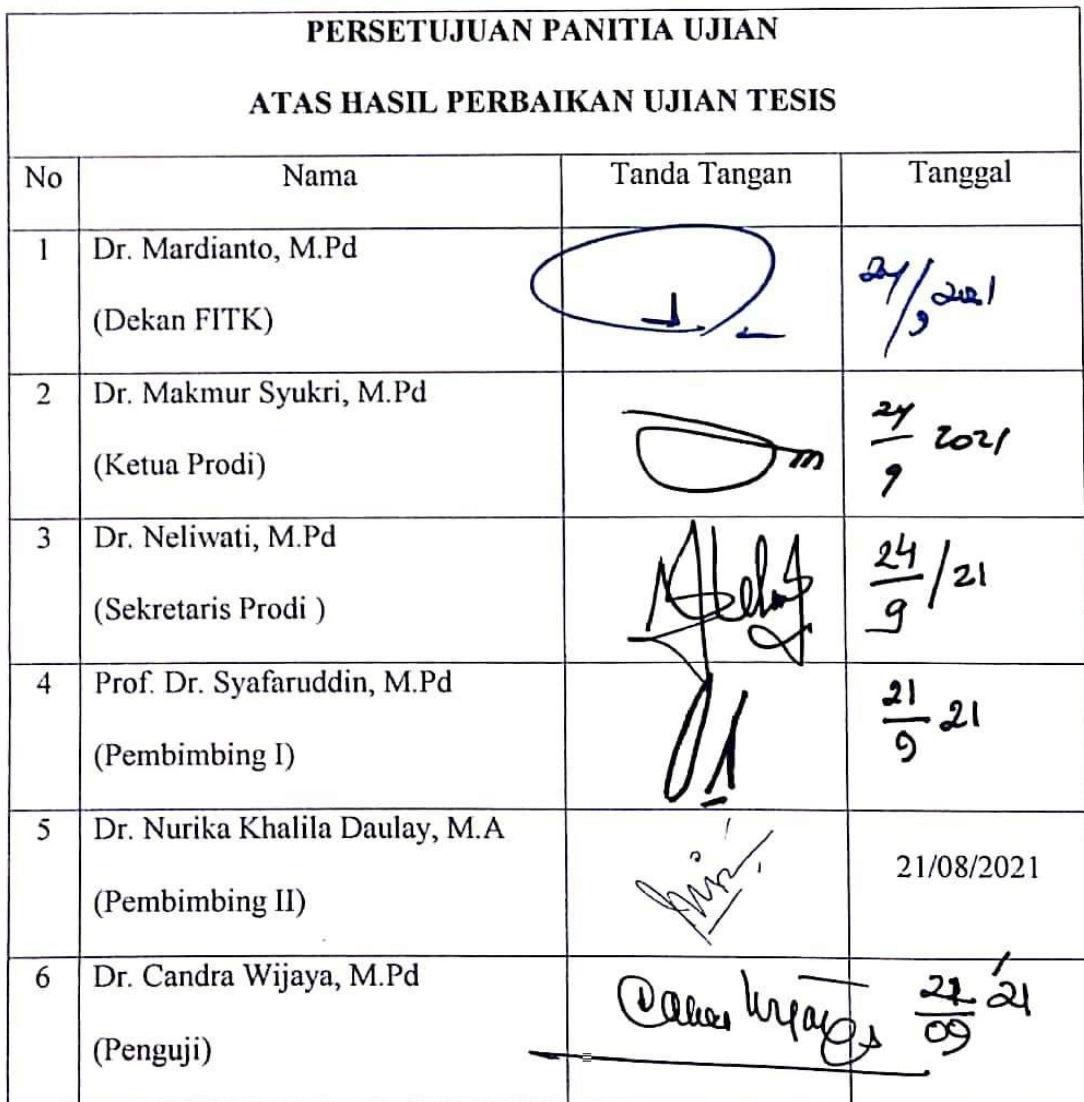 PERSETUJUAN PANITIA UJIAN
ATAS HASIL PERBAIKAN UJIAN TESIS
No Nama Tanda Tangan Tanggal
1 Dr. Mardianto, M.Pd
(Dekan FITK) 24/9 2021
2 Dr. Makmur Syukri, M.Pd
(Ketua Prodi) 24/9 2021
3 Dr. Neliwati, M.Pd
(Sekretaris Prodi ) 24/9/21
4 Prof. Dr. Syafaruddin, M.Pd
(Pembimbing I) 21/9 21
5 Dr. Nurika Khalila Daulay, M.A
(Pembimbing II) 21/08/2021
6 Dr. Candra Wijaya, M.Pd
(Penguji)